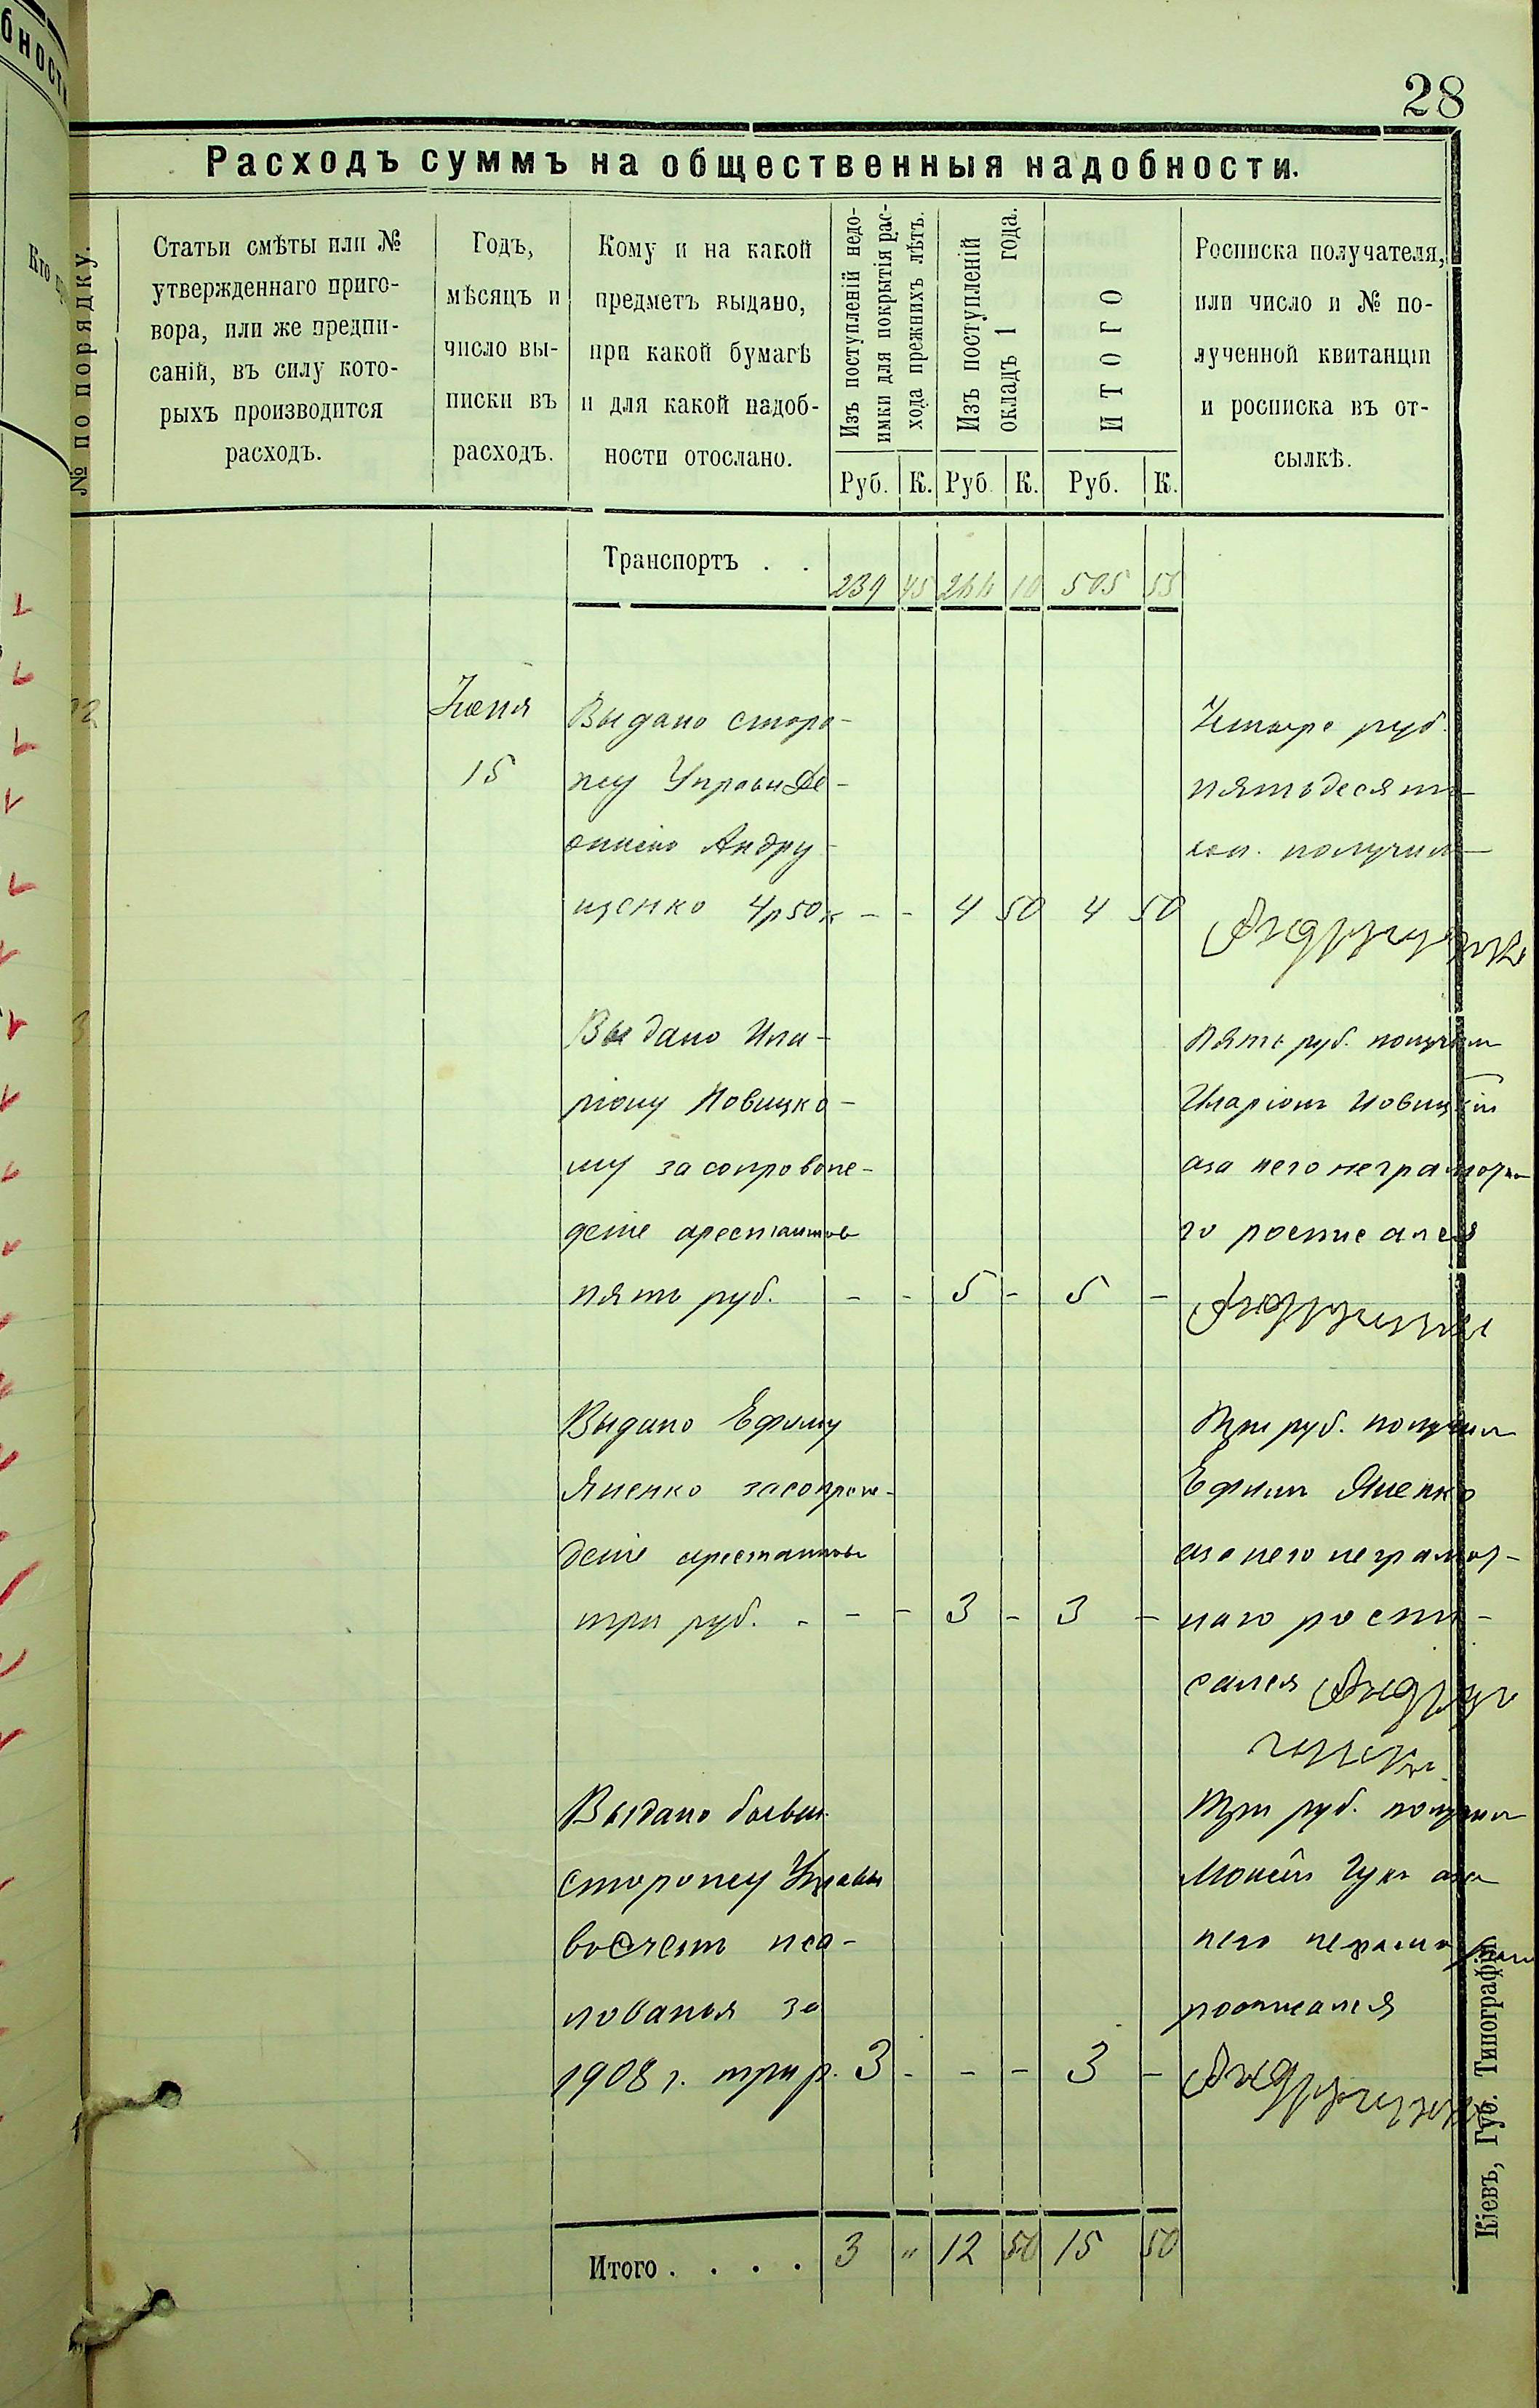 28
Расходъ суммъ на общественныя надобности.
№ по порядку.
Статьи смѣты или №
утвержденнаго приго-
вора, или же предпи-
саній, въ силу кото-
рыхъ производится
расходъ.
Годъ,
мѣсяцъ и
число вы-
писки въ
расходъ.
Кому и на какой
предметъ выдано,
при какой бумагѣ
и для какой надоб-
ности отослано.
Изъ поступленій недо-
имки для покрытія рас-
хода прежнихъ лѣтъ.
Изъ поступленій
окладъ 1 года.
ИТОГО
Руб. К. Руб. К. Руб. К.
Росписка получателя,
или число и № по-
лученной квитанціи
и росписка въ от-
сылкѣ.
Транспортъ . . 239 45 266 10 505 55
Іюня
15
Выдано сторо-
жу Управы
Андру
щенко 4р50к - - 4 50 4 50
Четыре руб.
пятьдесят
коп. получил
Андрущенко
Выдано Ила-
ріону Новицко-
му за сопровож-
деніе арестантов
пять руб. - - 5 - 5 -
Пять руб. получил
Иларіон Новицкій
а за него неграмотна
го росписался
Андрущенко
Выдано Ефиму
Яценко за сопрож-
деніе арестантов
три руб. - - - 3 - 3 -
Три руб. получил
Ефим Яценко
а за него неграмот-
наго роспи-
сался Андру
щенко
Выдано бывш.
сторожу Управы
в счет жа-
лованья за
1908 г. три р. 3 - - - 3 -
Три руб. получил
Моисей Гук а за
него неграмотнаго
росписался
Андрущенко
Итого . . . . 3 " 12 50 15 50
Кіевъ, Губ. Типографія